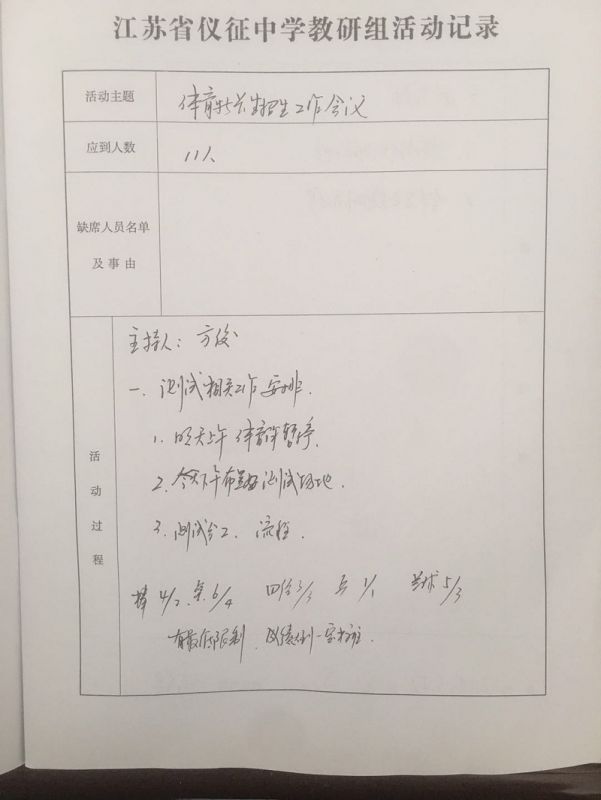 江苏省仪征中学教研组活动记录
活动主题
体育特长生招生工作会议
应到人数
11人
缺席人员名单
及事由
活动过程
主持人：方俊
一、测试相关工作安排.
1. 明天上午体育课暂停.
2. 今天下午布置好测试场地.
3. 测试分工、流程.
4/2 6/4 3/3 1/1 5/3
有最低限制